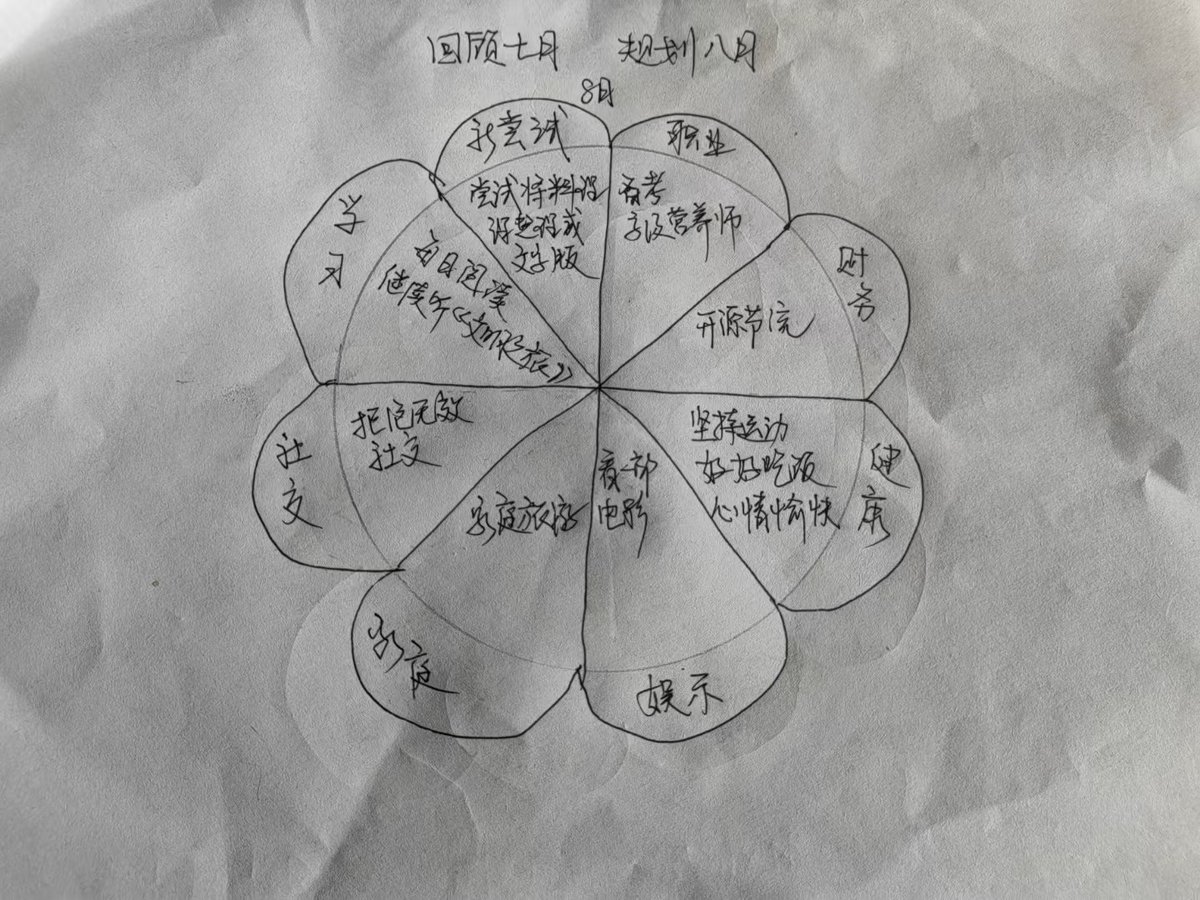 回顾七月 规划八月
8月
新尝试
尝试将料设
文字版
职业
备考
营养师
财务
开源节流
健康
坚持运动
好好吃饭
心情愉快
娱乐
看一部
电影
家庭
家庭旅游
社交
拒绝无效
社交
学习
每日阅读